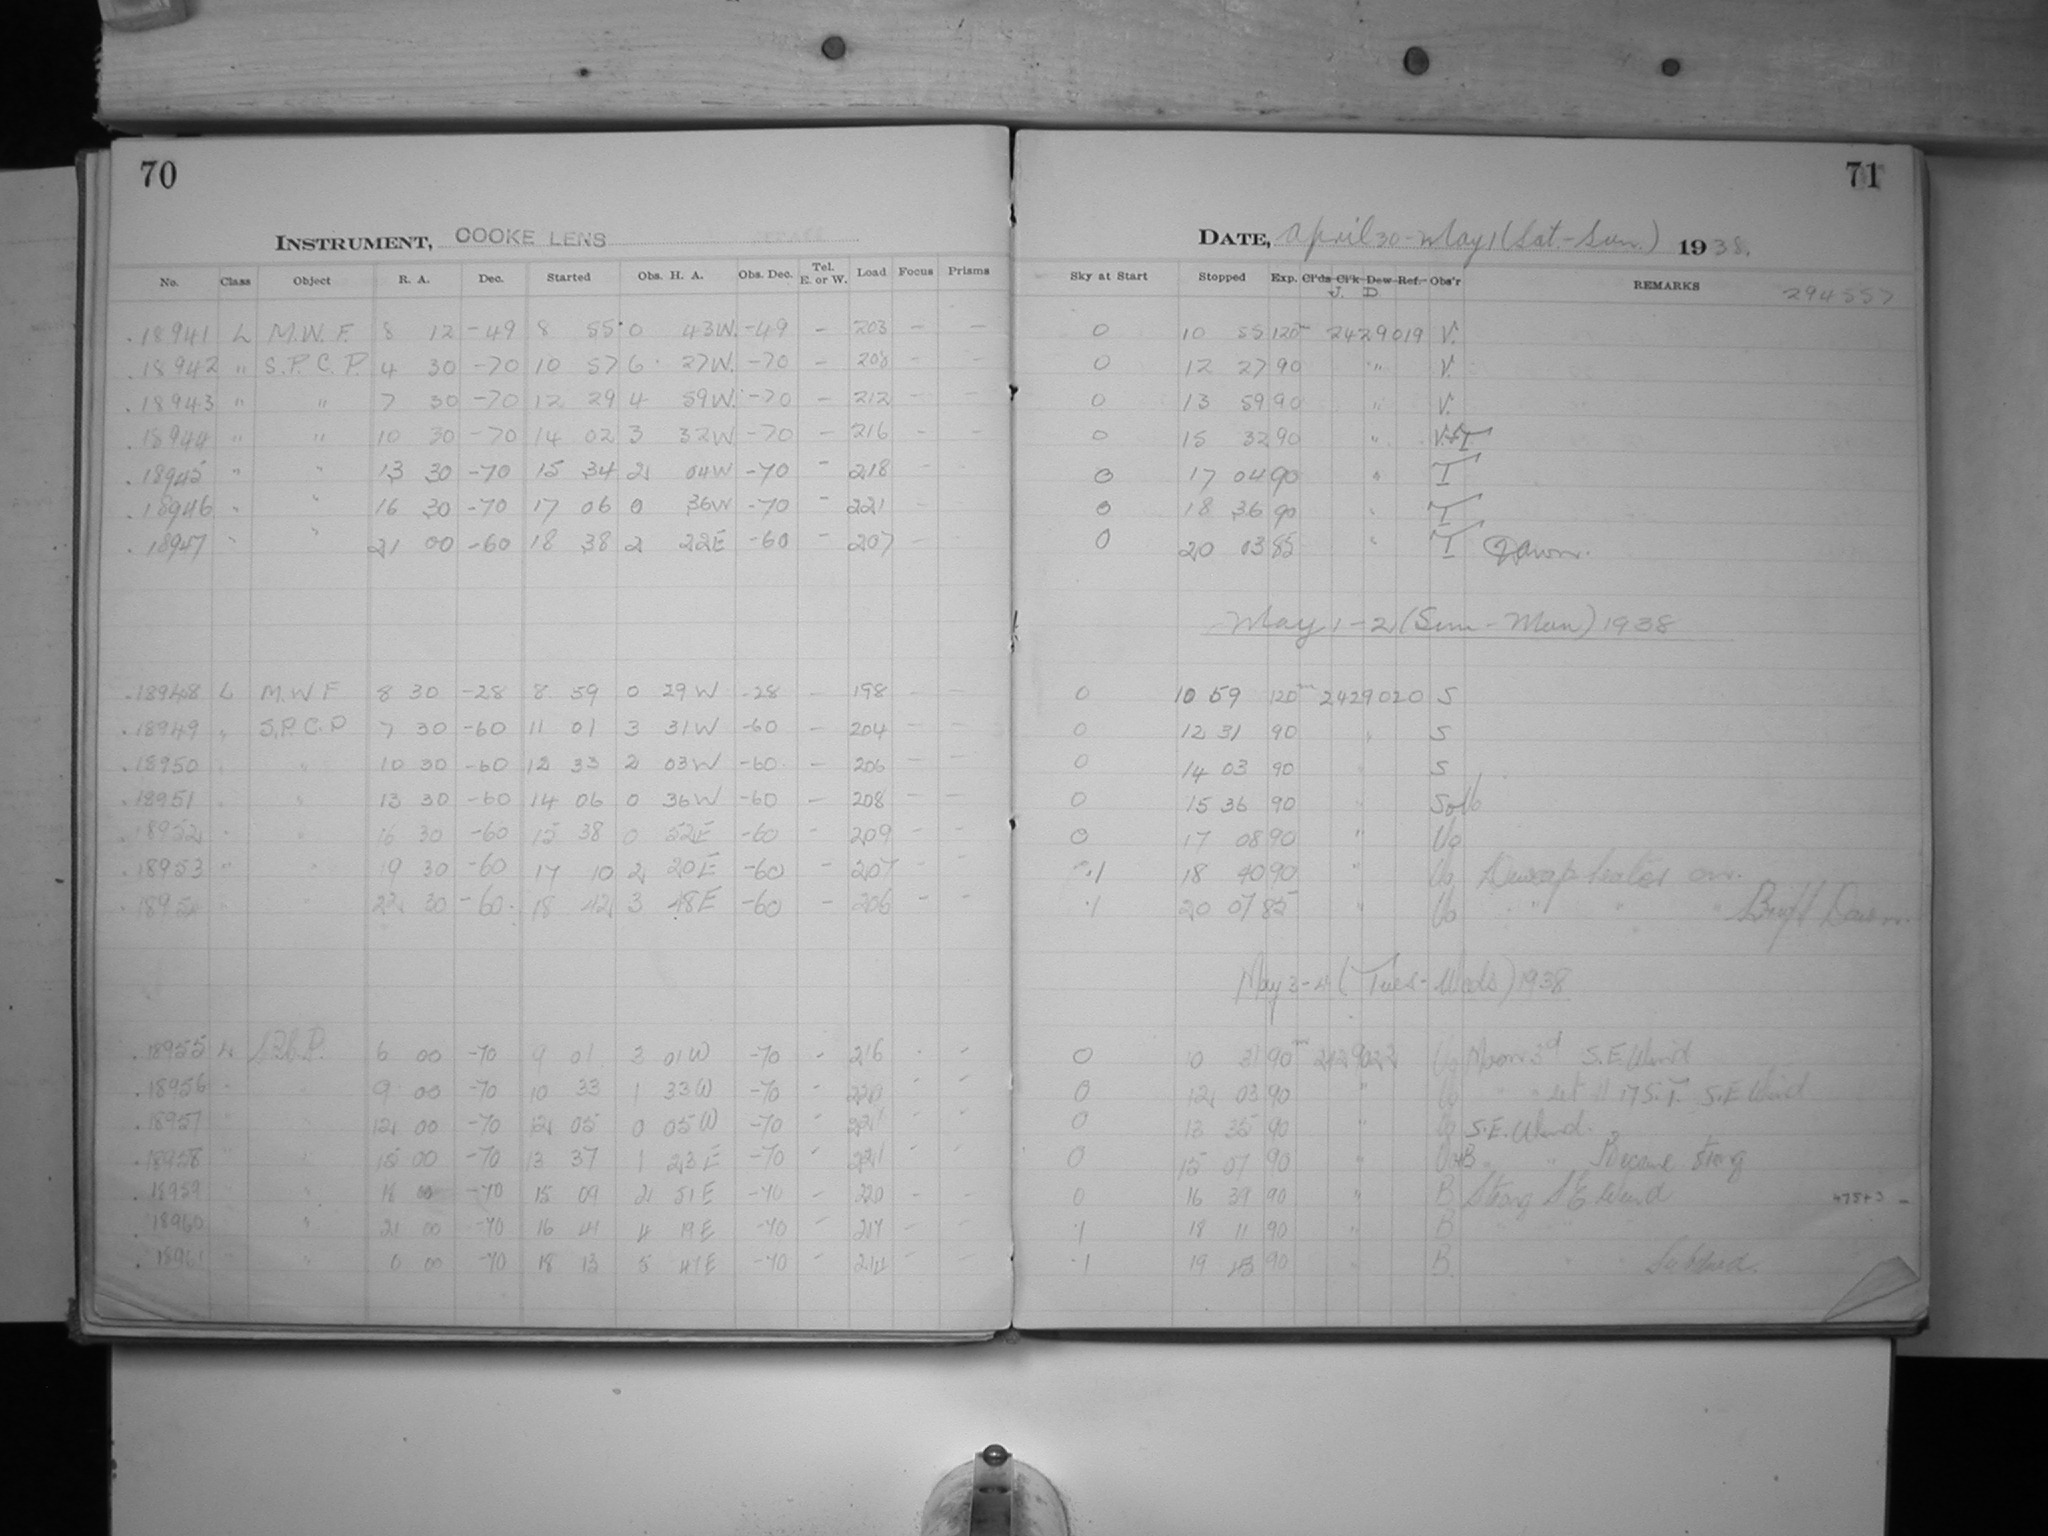 70
71
INSTRUMENT, COOKE LENS
DATE, April 30 - May 1 (Sat. - Sun.) 1938.
No. Class Object R. A. Dec. Started Obs. H. A. Obs. Dec. Tel. E. or W. Load Focus Prisms Sky at Start Stopped Exp. Cl'ds Cl'k Dew Ref. Obs'r REMARKS 294557
J. D.
.18941 L M.W.F. 8 12 -49 8 55 0 43W. -49 - 203 - - 0 10 55 120m 2429019 V.
.18942 " S.P.C.P. 4 30 -70 10 57 6 27W. -70 - 208 - - 0 12 27 90 " V.
.18943 " " 7 30 -70 12 29 4 59W. -70 - 212 - - 0 13 59 90 " V.
.18944 " " 10 30 -70 14 02 3 32W -70 - 216 - - 0 15 32 90 " V.+T
.18945 " " 13 30 -70 15 34 2 04W -70 - 218 - - 0 17 04 90 " T
.18946 " " 16 30 -70 17 06 0 36W -70 - 221 - 0 18 36 90 " T
.18947 " " 21 00 -60 18 38 2 22E -60 - 207 - 0 20 03 85 " T Dawn.
May 1-2 (Sun - Mon) 1938
.18948 L M.W.F 8 30 -28 8 59 0 29W -28 - 198 - - 0 10 59 120m 2429020 S
.18949 " S.P.C.P 7 30 -60 11 01 3 31W -60 - 204 - - 0 12 31 90 " S
.18950 " " 10 30 -60 12 33 2 03W -60 - 206 - - 0 14 03 90 " S
.18951 " " 13 30 -60 14 06 0 36W -60 - 208 - - 0 15 36 90 "
.18952 " " 16 30 -60 15 38 0 52E -60 - 209 - - 0 17 08 90 "
.18953 " " 19 30 -60 17 10 2 20E -60 - 207 - - .1 18 40 90 " Dewcap heater on.
.18954 " " 22 30 -60 18 42 3 48E -60 - 206 - - .1 20 07 85 " " " " Bright Dawn.
May 3-4 (Tues - Weds) 1938
.18955 L S.P.C.P. 6 00 -70 9 01 3 01W -70 - 216 - - 0 10 31 90m 2429022 Moon 3d S.E. Wind
.18956 " " 9 00 -70 10 33 1 33W -70 - 220 - - 0 12 03 90 " " set 11 17 S.T. S.E Wind
.18957 " " 12 00 -70 12 05 0 05W -70 - 221 - - 0 13 35 90 " S.E. Wind.
.18958 " " 15 00 -70 13 37 1 23E -70 - 221 - - 0 15 07 90 " " " Became Strong
.18959 " " 18 00 -70 15 09 2 51E -70 - 220 - - 0 16 39 90 " B Strong S E Wind 47543 -
.18960 " " 21 00 -70 16 41 4 19E -70 - 217 - - .1 18 11 90 " B " " "
.18961 " " 0 00 -70 18 13 5 47E -70 - 214 - - .1 19 43 90 " B " " "